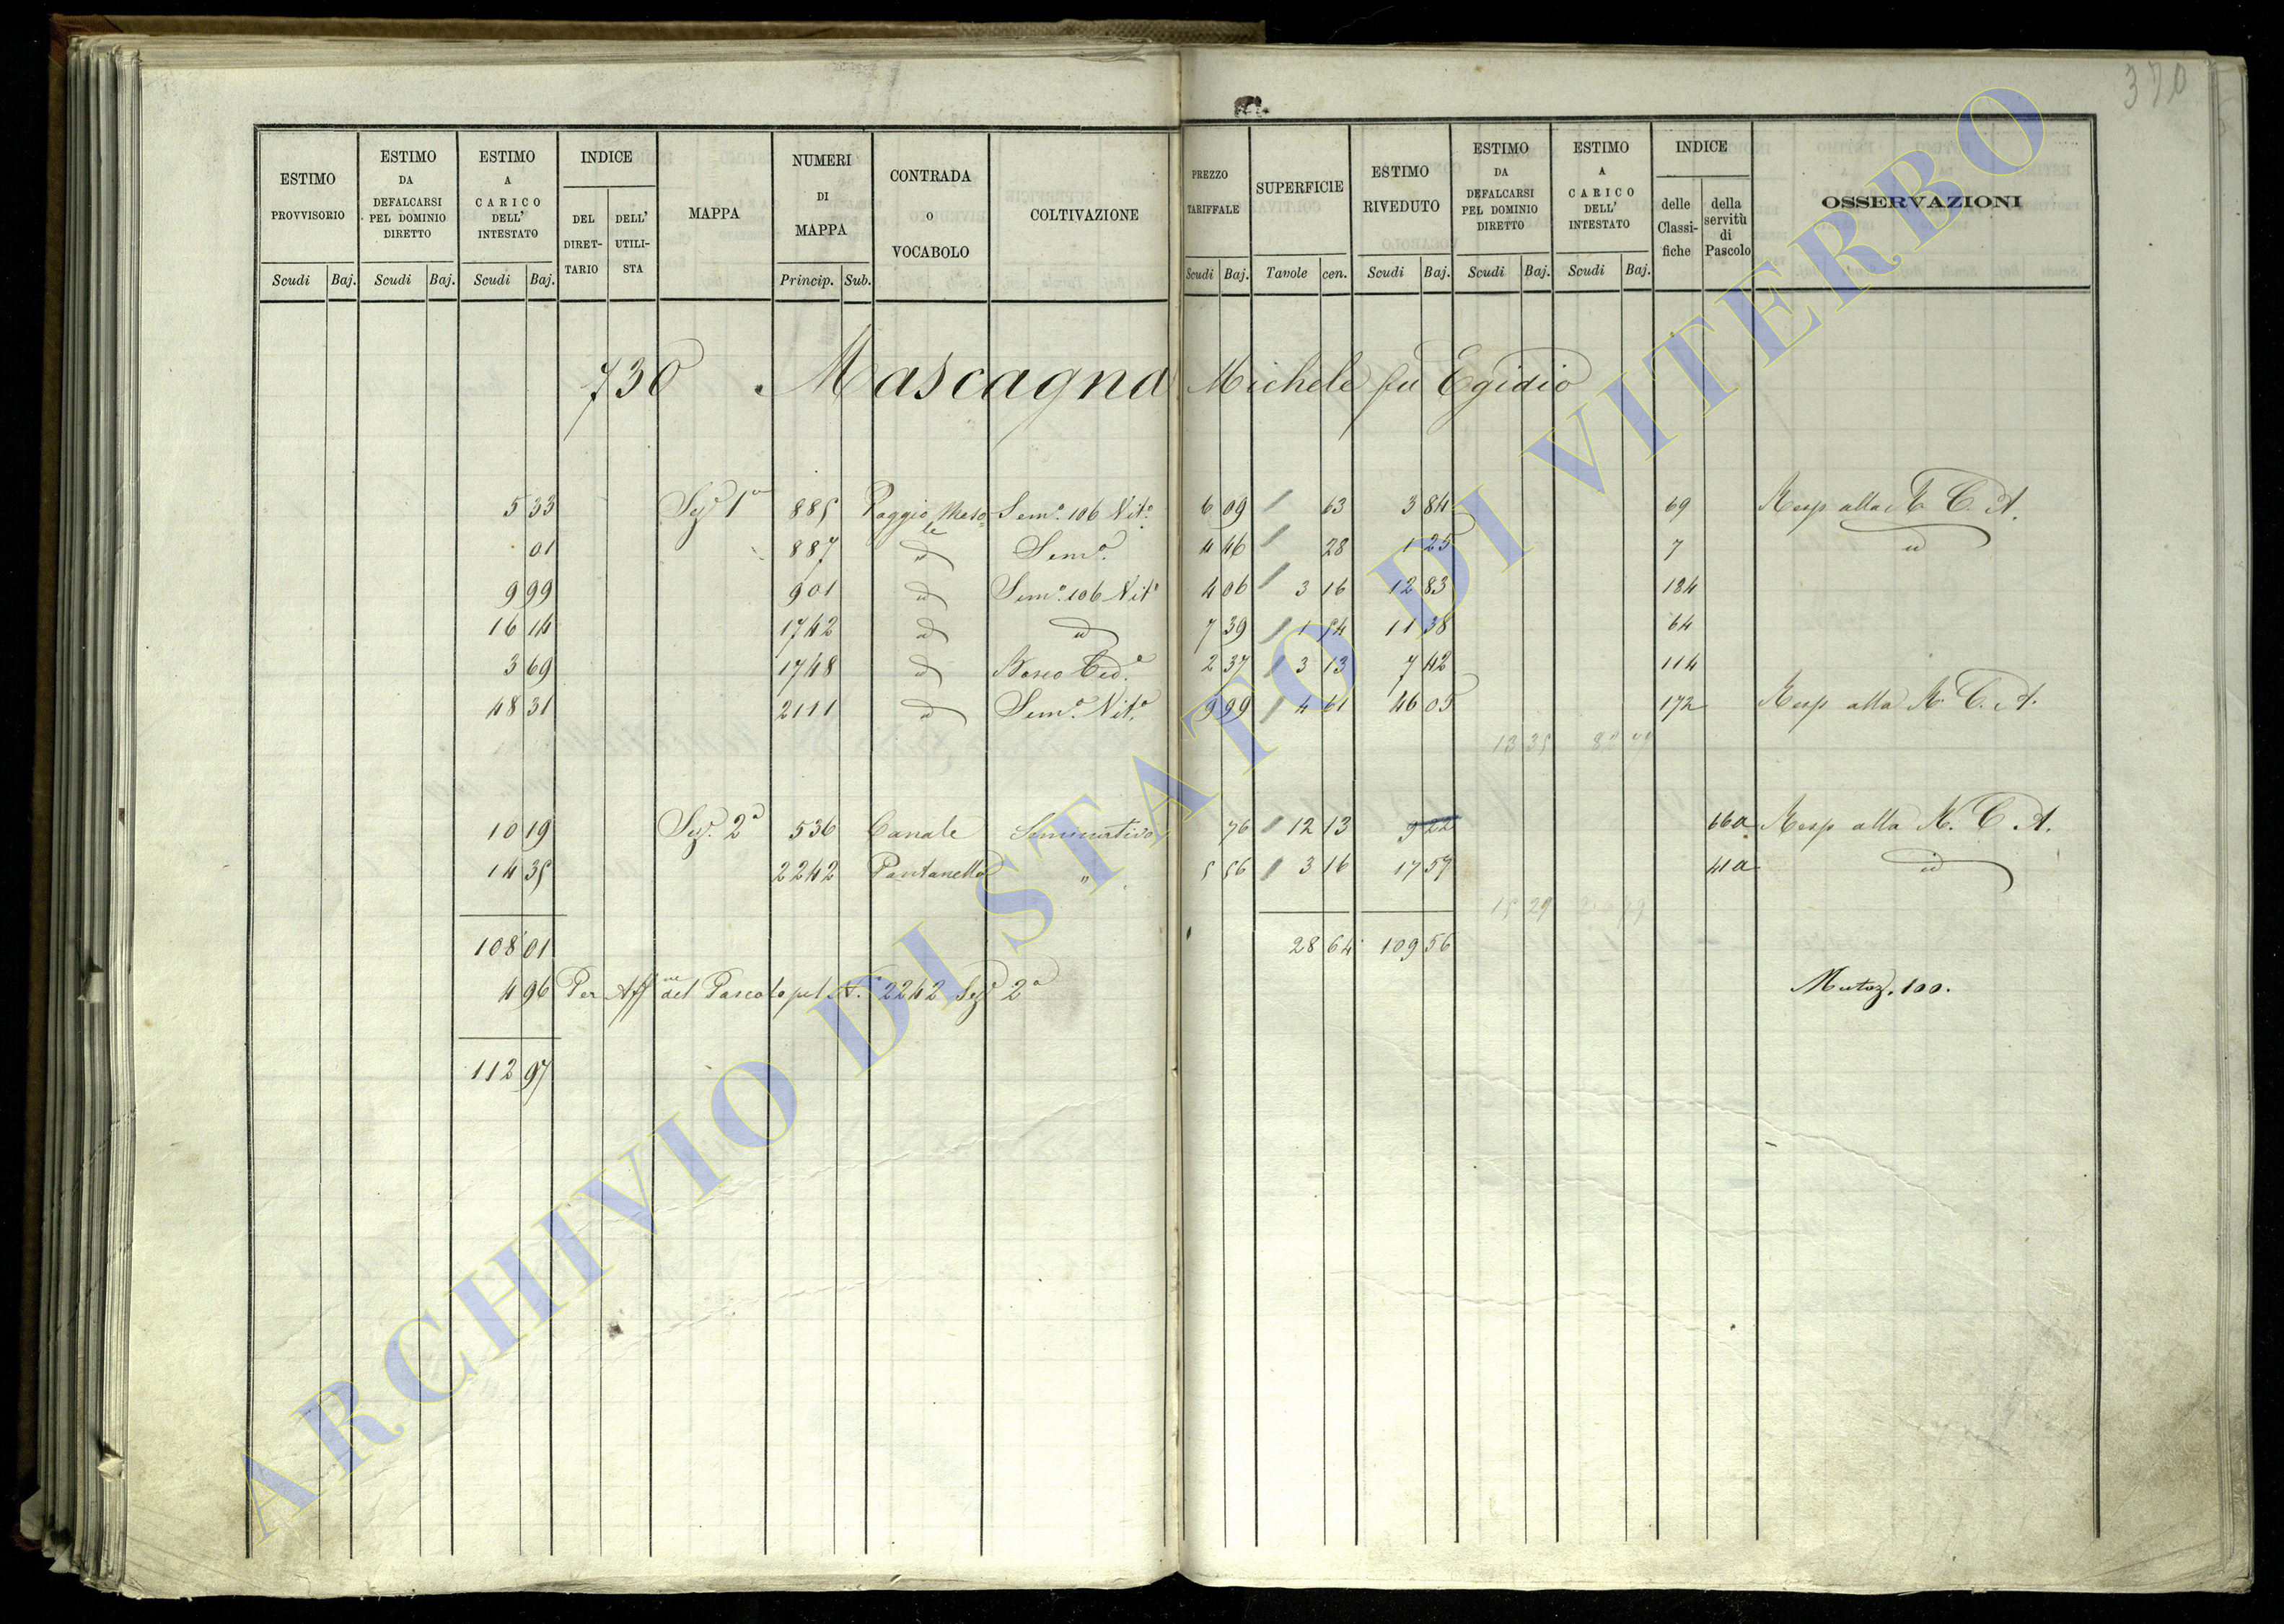 370
ESTIMO PROVVISORIO
ESTIMO DA DEFALCARSI PEL DOMINIO DIRETTO
ESTIMO A CARICO DELL' INTESTATO
INDICE
DEL DIRET-TARIO
DELL' UTILI-STA
MAPPA
NUMERI DI MAPPA
CONTRADA O VOCABOLO
COLTIVAZIONE
PREZZO TARIFFALE
SUPERFICIE
ESTIMO RIVEDUTO
ESTIMO DA DEFALCARSI PEL DOMINIO DIRETTO
ESTIMO A CARICO DELL' INTESTATO
INDICE
delle Classi-fiche
della servitù di Pascolo
OSSERVAZIONI
Scudi Baj. Scudi Baj. Scudi Baj. Princip. Sub. Scudi Baj. Tavole cen. Scudi Baj. Scudi Baj. Scudi Baj.
730 Mascagna Michele fu Egidio
5 33 Sez.e 1a 885 Poggio Meso=le Sem.o 106 Vit.o 6 09 63 3 84 69 Resp alla R. C. A.
01 887 id Sem.o 4 46 28 1 25 7 id
9 99 901 id Sem.o 106 Vit.o 4 06 3 16 12 83 184
16 14 1742 id id 7 39 1 54 11 38 64
3 69 1748 id Bosco Ced.o 2 37 3 13 7 42 114
48 31 2111 id Sem.o Vit.o 9 99 4 61 46 05 172 Resp alla R. C. A.
13 35
10 19 Sez.e 2a 536 Canale Seminativo 76 12 13 9 22 66a Resp alla R. C. A.
14 35 2242 Pantanella " 5 56 3 16 17 57 41a id
15 29
108 01 28 64 109 56
4 96 Per Aff.ne del Pascolo pel N. 2242 Sez.e 2a Mutaz. 100.
112 97
ARCHIVIO DI STATO DI VITERBO